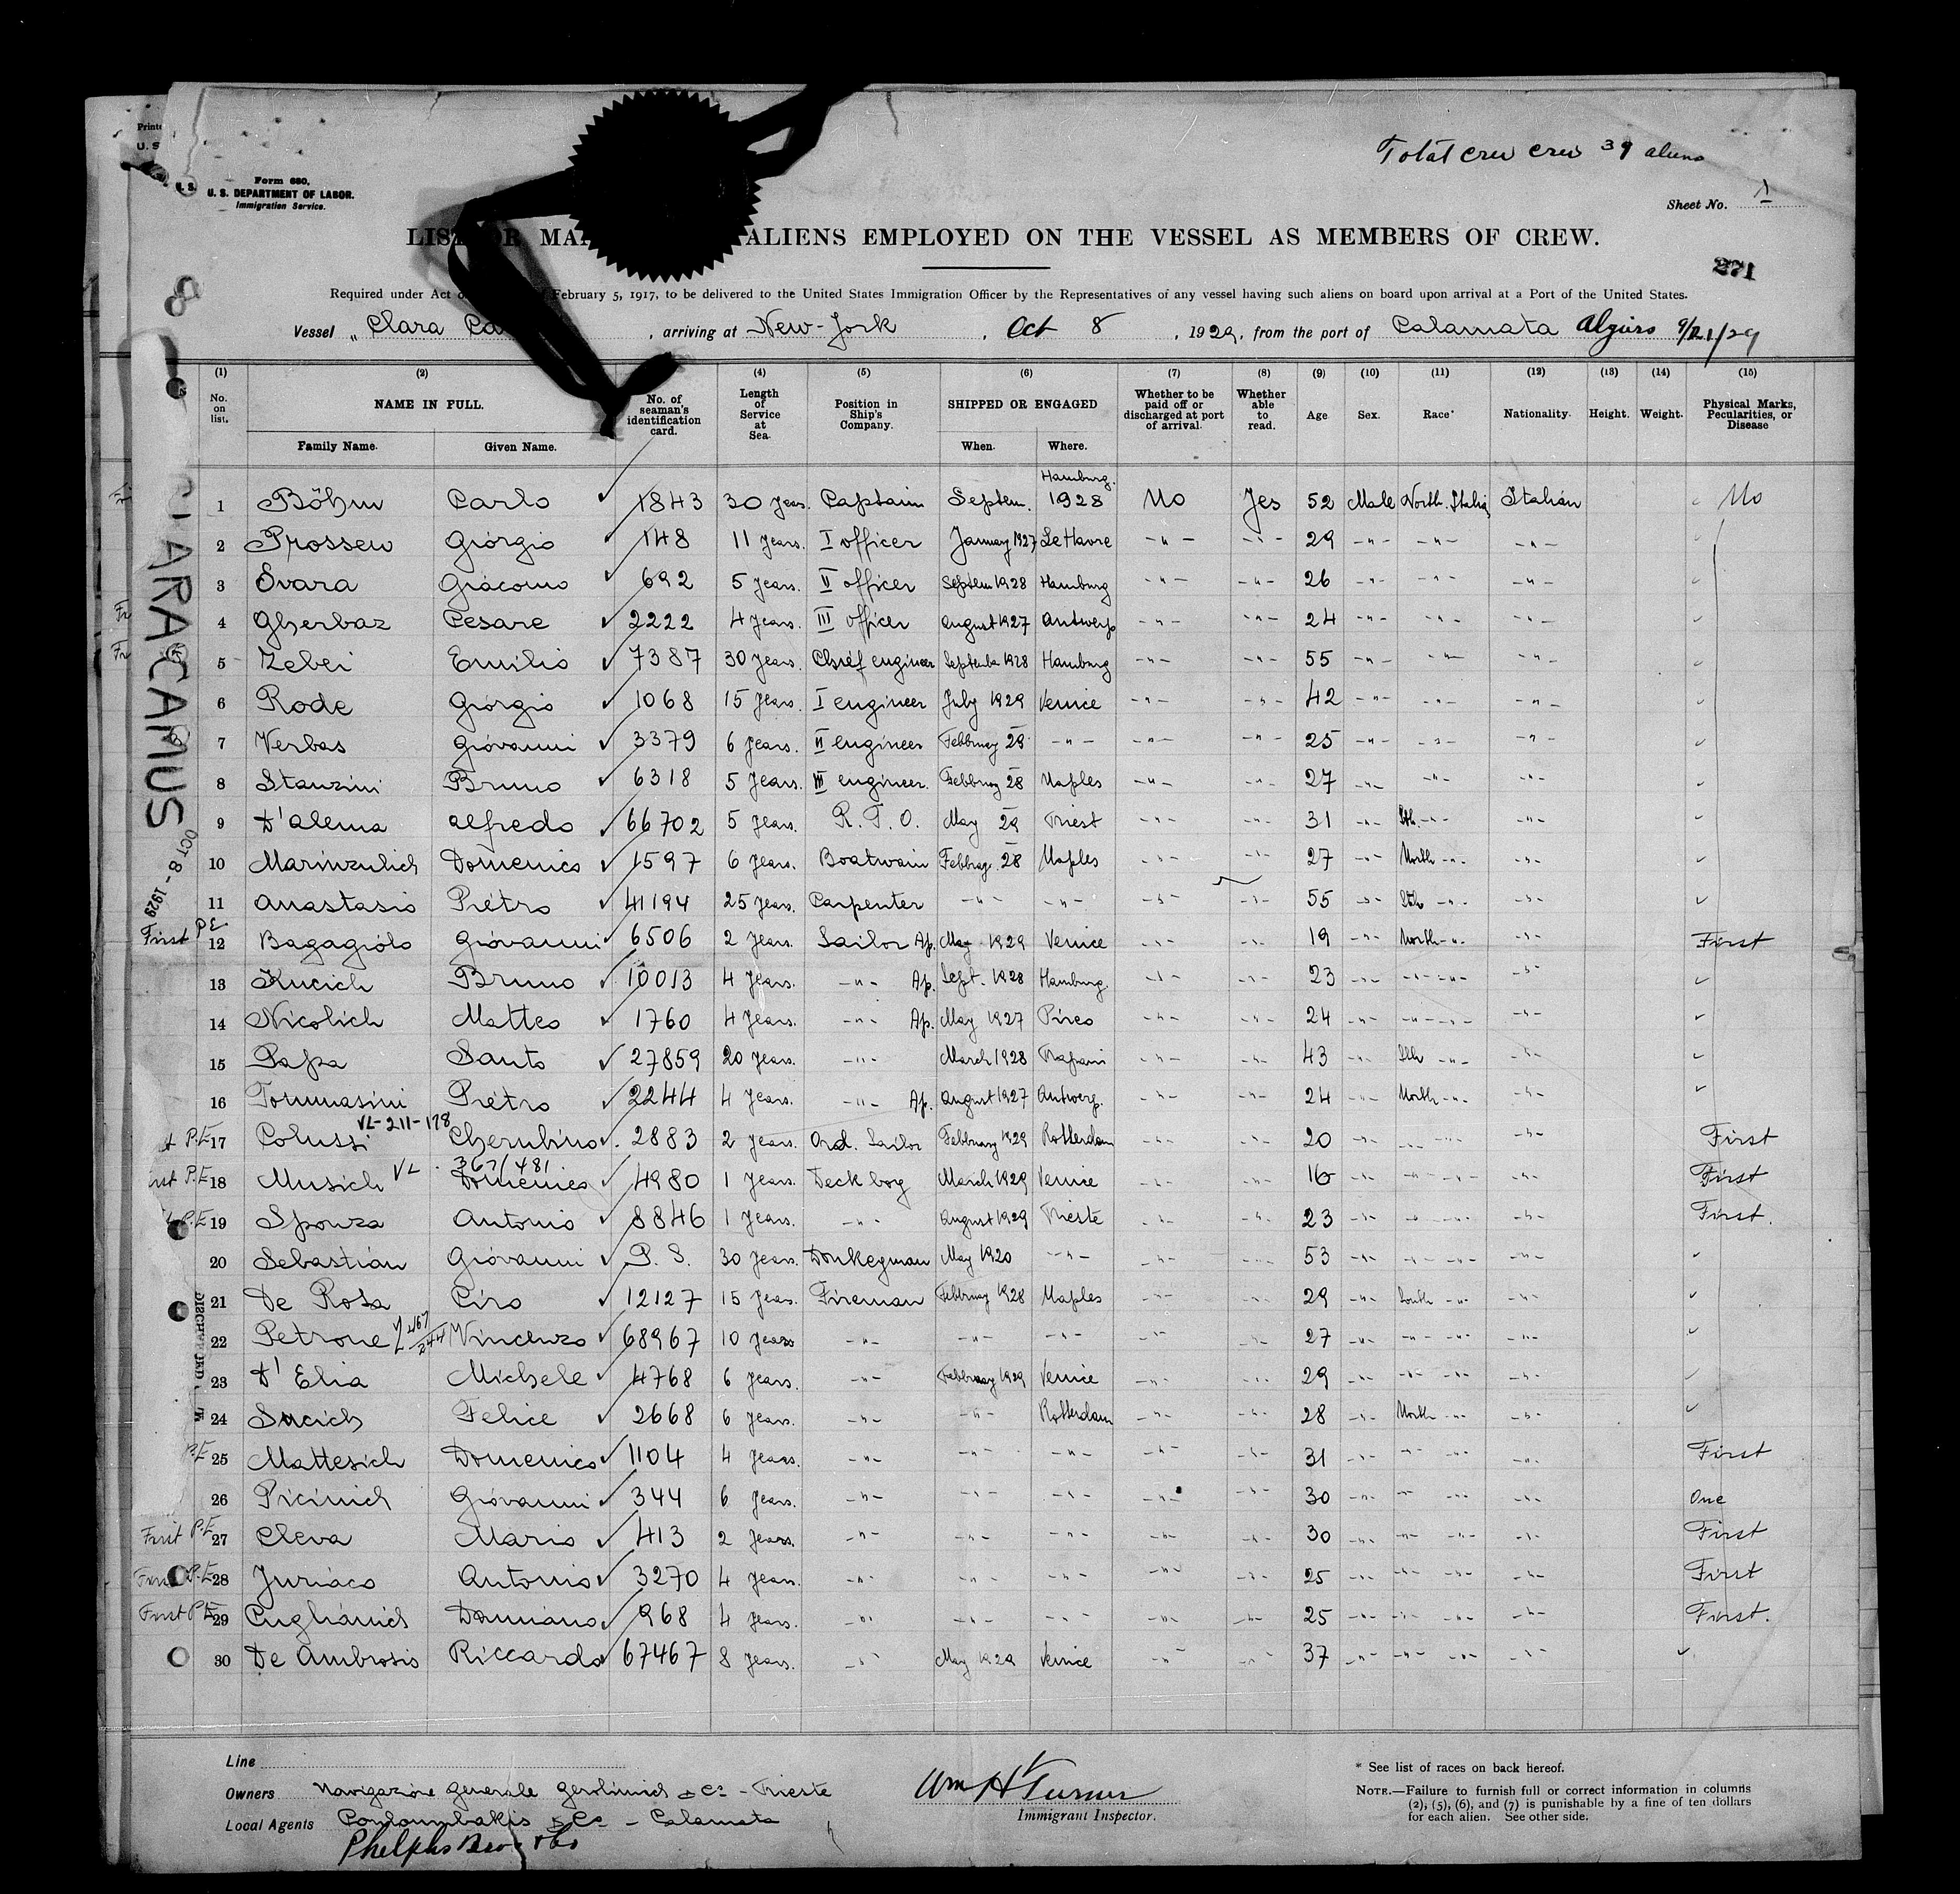 Total crew crew 39 aliens
Form 680,
U. S. DEPARTMENT OF LABOR.
Immigration Service.
Sheet No. 1
LIST OR ALIENS EMPLOYED ON THE VESSEL AS MEMBERS OF CREW.
271
Required under Act February 5, 1917, to be delivered to the United States Immigration Officer by the Representatives of any vessel having such aliens on board upon arrival at a Port of the United States.
Vessel „ Clara , arriving at New-York , Oct 8 , 1929, from the port of Calamata
(1) (2) (4) (5) (6) (7) (8) (9) (10) (11) (12) (13) (14) (15)
No. on list. NAME IN FULL. No. of seaman's identification card. Length of Service at Sea. Position in Ship's Company. SHIPPED OR ENGAGED Whether to be paid off or discharged at port of arrival. Whether able to read. Age. Sex. Race* Nationality. Height. Weight. Physical Marks, Pecularities, or Disease
Family Name. Given Name. When. Where.
CLARA CAMUS
OCT 8 - 1929
1 Böhm Carlo 1843 30 Jears. Captain Septem. 1928 Hamburg. No Jes 52 Male North. Italia Italian No
2 Prossen Giorgio 148 11 Jears. I officer January 1927 Le Havre -"- -"- 29 -"- -"- -"-
3 Svara Giacomo 692 5 Jears. II officer Septem 1928 Hamburg -"- -"- 26 -"- -"- -"-
4 Gherbaz Cesare 2222 4 Jears. III officer August 1927 Antwerp -"- -"- 24 -"- -"- -"-
5 Zebei Emilio 7387 30 Jears. Chief engineer Septembr 1928 Hamburg -"- -"- 55 -"- -"- -"-
6 Rode Giorgio 1068 15 Jears. I engineer July 1929 Venice -"- -"- 42 -"- -"- -"-
7 Verbas Giovanni 3379 6 Jears. II engineer Febbruay 29 -"- -"- -"- 25 -"- -"- -"-
8 Stanzini Bruno 6318 5 Jears. III engineer. Febbruay 28 Naples -"- -"- 27 -"- -"- -"-
9 D'Alema Alfredo 66702 5 Jears. R. T. O. May 29 Triest -"- -"- 31 -"- Sth. -"- -"-
10 Marinzulich Domenico 1597 6 Jears. Boatwain Febbruay. 28 Naples -"- -"- 27 -"- North -"- -"-
11 Anastasio Pietro 41194 25 Jears. Carpenter -"- -"- -"- -"- 55 -"- Sth -"- -"-
First P.E. 12 Bagagiolo Giovanni 6506 2 Jears. Sailor Ap. May 1929 Venice -"- -"- 19 -"- North -"- -"- First
13 Kucich Bruno 10013 4 Jears. -"- Ap. Sept. 1928 Hamburg. -"- -"- 23 -"- -"- -"- -"-
14 Nicolich Matteo 1760 4 Jears. -"- Ap. May 1927 Pireo -"- -"- 24 -"- -"- -"- -"-
15 Papa Santo 27859 20 Jears. -"- March 1928 Trapani -"- -"- 43 -"- Sth -"- -"-
16 Tommasini Pietro 2244 4 Jears. -"- Ap. August 1927 Antwerp. -"- -"- 24 -"- North -"- -"-
VL-211-178
P.E. 17 Colussi Cherubino 2883 2 Jears. Ord. Sailor Febbruay 1929 Rotterdam -"- -"- 20 -"- -"- -"- -"- First
P.E. 18 Musich VL. 367/481 Domenico 4980 1 Jears. Deck boy March 1929 Venice -"- -"- 16 -"- -"- -"- -"- First
P.E. 19 Sponza Antonio 8846 1 Jears. -"- August 1929 Trieste -"- -"- 23 -"- -"- -"- -"- First.
20 Sebastian Giovanni P. S. 30 Jears. Donkeyman May 1920 -"- -"- -"- 53 -"- -"- -"- -"-
21 De Rosa Ciro 12127 15 Jears. Fireman Febbruay 1928 Naples -"- -"- 29 -"- South -"- -"-
22 Petrone VL 467/244 Vincenzo 68967 10 Jears -"- -"- -"- -"- -"- 27 -"- -"- -"- -"-
23 D'Elia Michele 4768 6 Jears. -"- Febbruay 1929 Venice -"- -"- 29 -"- -"- -"- -"-
24 Sucich Felice 2668 6 Jears. -"- -"- Rotterdam -"- -"- 28 -"- North -"- -"-
P.E. 25 Mattesich Domenico 1104 4 Jears. -"- -"- -"- -"- -"- 31 -"- -"- -"- -"- First
26 Picinich Giovanni 344 6 Jears. -"- -"- -"- -"- -"- 30 -"- -"- -"- -"- One
First P.E. 27 Cleva Mario 413 2 Jears. -"- -"- -"- -"- -"- 30 -"- -"- -"- -"- First
First P.E. 28 Juriaco Antonio 3270 4 Jears. -"- -"- -"- -"- -"- 25 -"- -"- -"- -"- First
First P.E. 29 Cuglianich Damiano 968 4 Jears. -"- -"- -"- -"- -"- 25 -"- -"- -"- -"- First.
30 De Ambrosis Riccardo 67467 8 Jears. -"- May 1929 Venice -"- -"- 37 -"- -"- -"- -"-
Line
Owners Navigazione Generale Gerolimich & Co - Trieste
Local Agents & Co - Calamata
Phelphs Bros & Co
Wm H Turner
Immigrant Inspector.
* See list of races on back hereof.
NOTE.—Failure to furnish full or correct information in columns
(2), (5), (6), and (7) is punishable by a fine of ten dollars
for each alien. See other side.